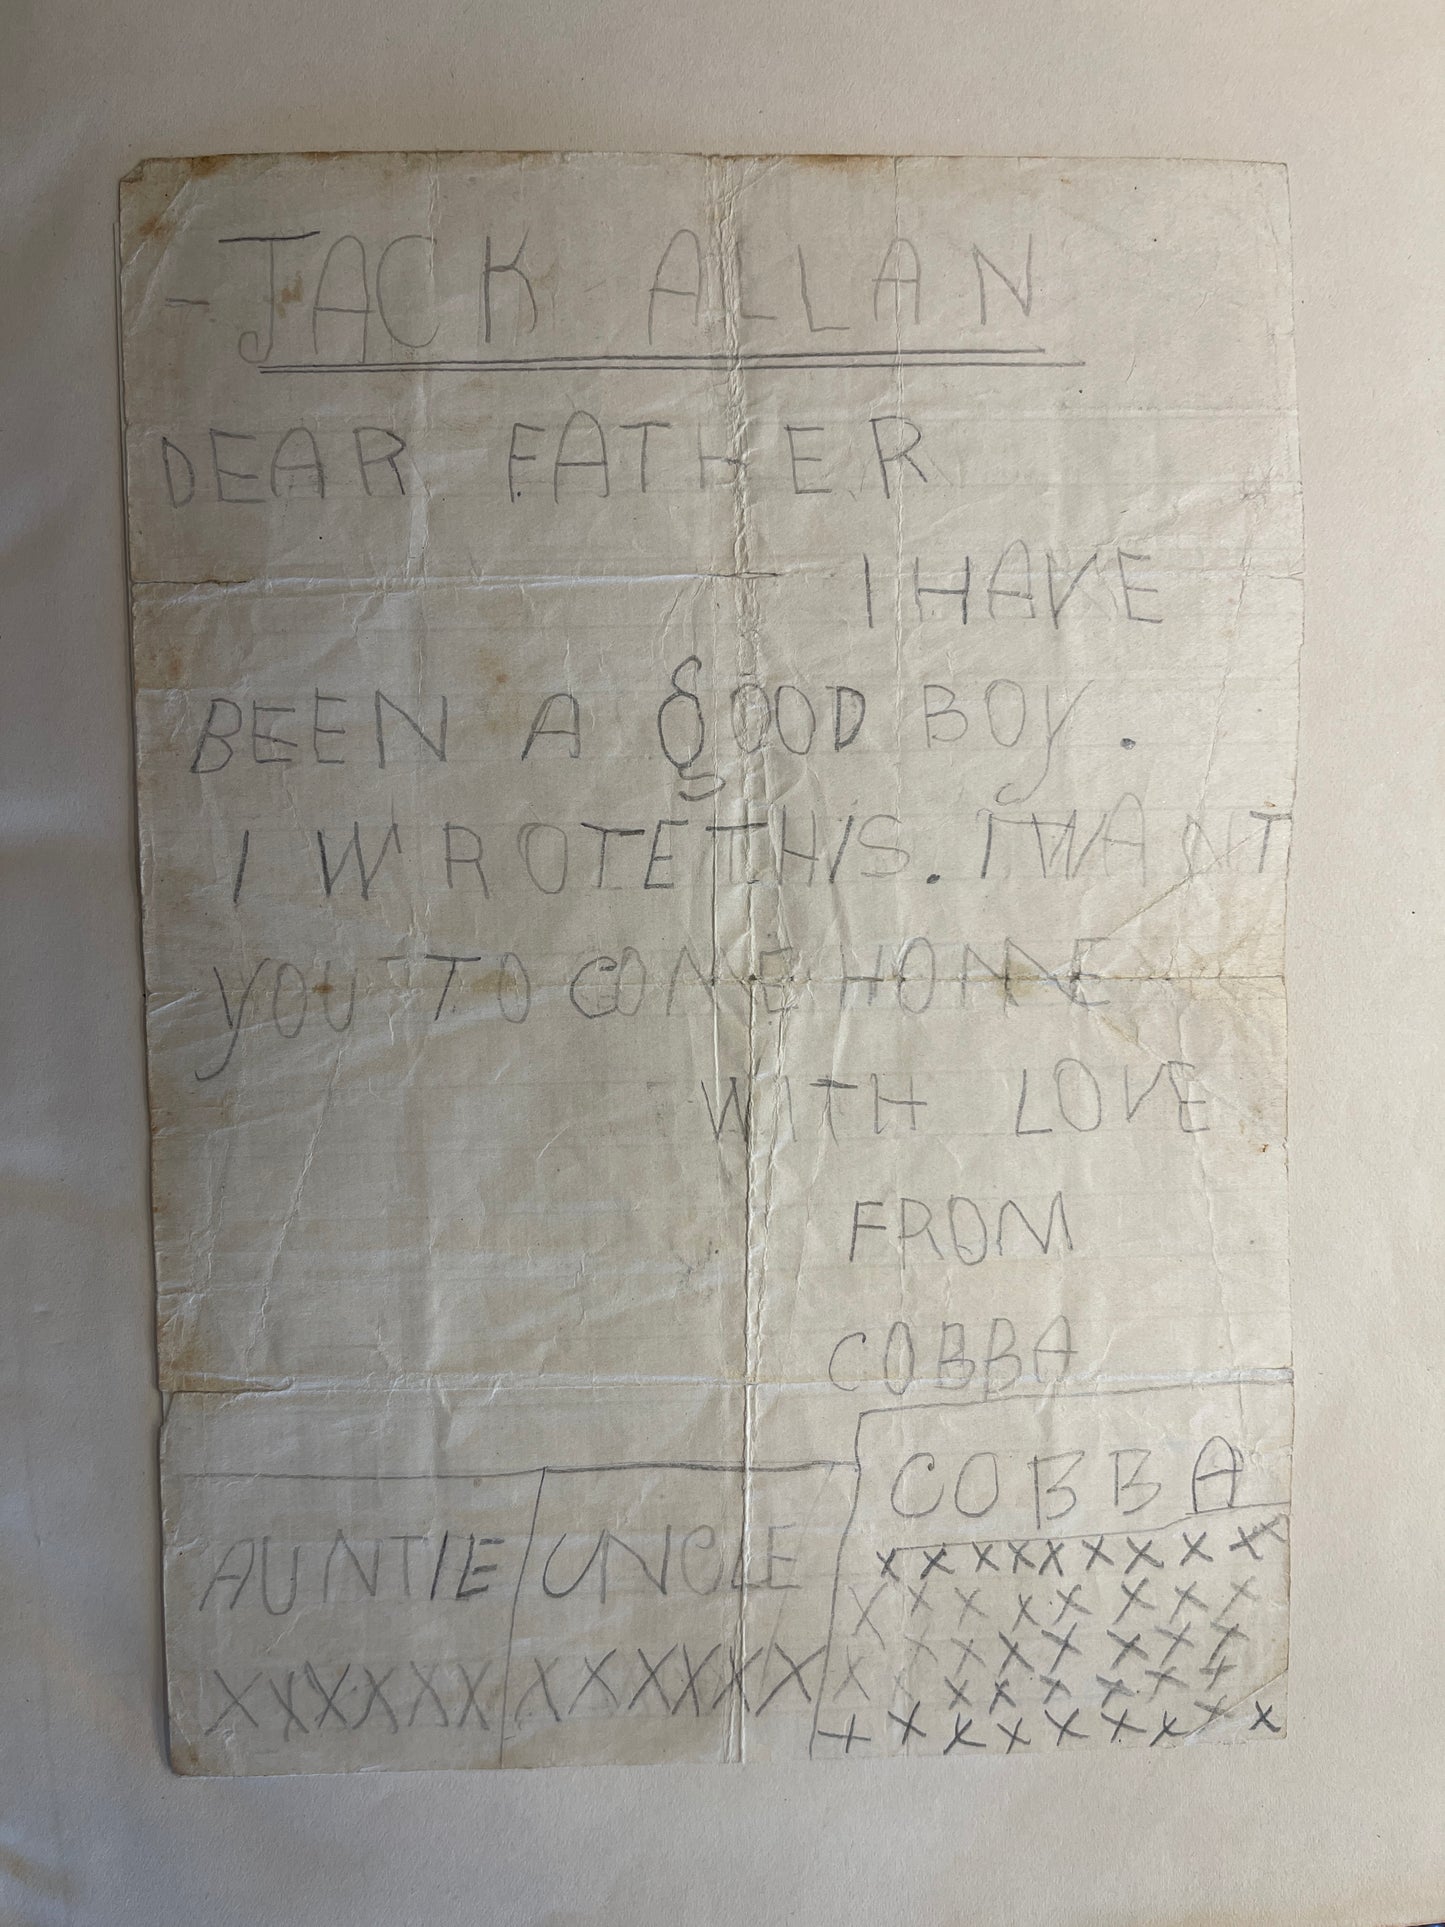 - JACK ALLAN
DEAR FATHER
I HAVE
BEEN A gOOD BOy.
I WROTE THIS. I WANT
yOU TO COME HOME
WITH LOVE
FROM
COBBA
COBBA
AUNTIE UNCLE
XXXXXXXXXX
XXXXXXXX
XXXXXXXX
XXXXXXXX
XXXXXX XXXXXXX
XXXXXXXXX